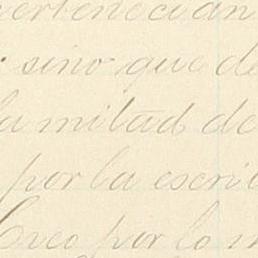 pertenecian
sino que de
la mitad de
por la escri
Creo por lo m